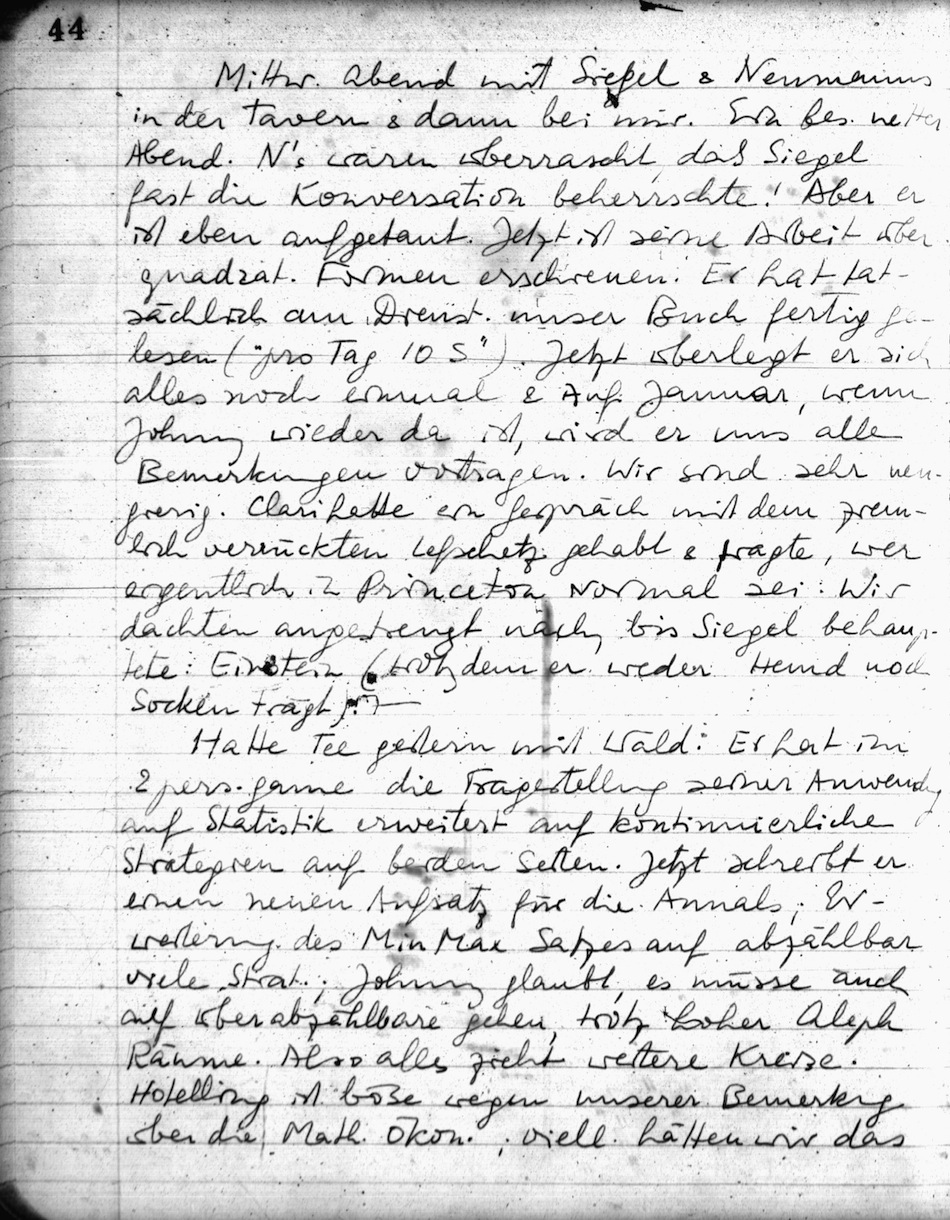 44
Mittw. Abend mit Siegel & Neumanns
in der Tavern & dann bei mir. Ein bes. netter
Abend. N's waren überrascht, daß Siegel
fast die Konversation beherrschte! Aber er
ist eben aufgetaut. Jetzt ist seine Arbeit über
quadrat. Formen erschienen. Er hat tat-
sächlich am Dienst. unser Buch fertig ge-
lesen ("pro Tag 10 S"). Jetzt überlegt er sich
alles noch einmal & Anf. Januar, wenn
Johnny wieder da ist, wird er uns alle
Bemerkungen vortragen. Wir sind sehr neu-
gierig. Clari hatte ein Gespräch mit dem ziem-
lich verrückten Lefschetz gehabt & fragte, wer
eigentlich in Princeton normal sei: Wir
dachten angestrengt nach, bis Siegel behaup-
tete: Einstein (trotzdem er weder Hemd noch
Socken trägt)! –
Hatte Tee gestern mit Wald: Er hat im
2 pers. game die Fragestellung seiner Anwendg
auf Statistik erweitert auf kontinuierliche
Strategien auf beiden Seiten. Jetzt schreibt er
einen neuen Aufsatz für die Annals; Er-
weiterung des Min Max Satzes auf abzählbar
viele Strat.; Johnny glaubt, es müsse auch
auf überabzählbare gehen, trotz hoher Aleph
Räume. Also alles zieht weitere Kreise.
Hotelling ist böse wegen unserer Bemerkg
über die Math. Ökon.; viell. hätten wir das